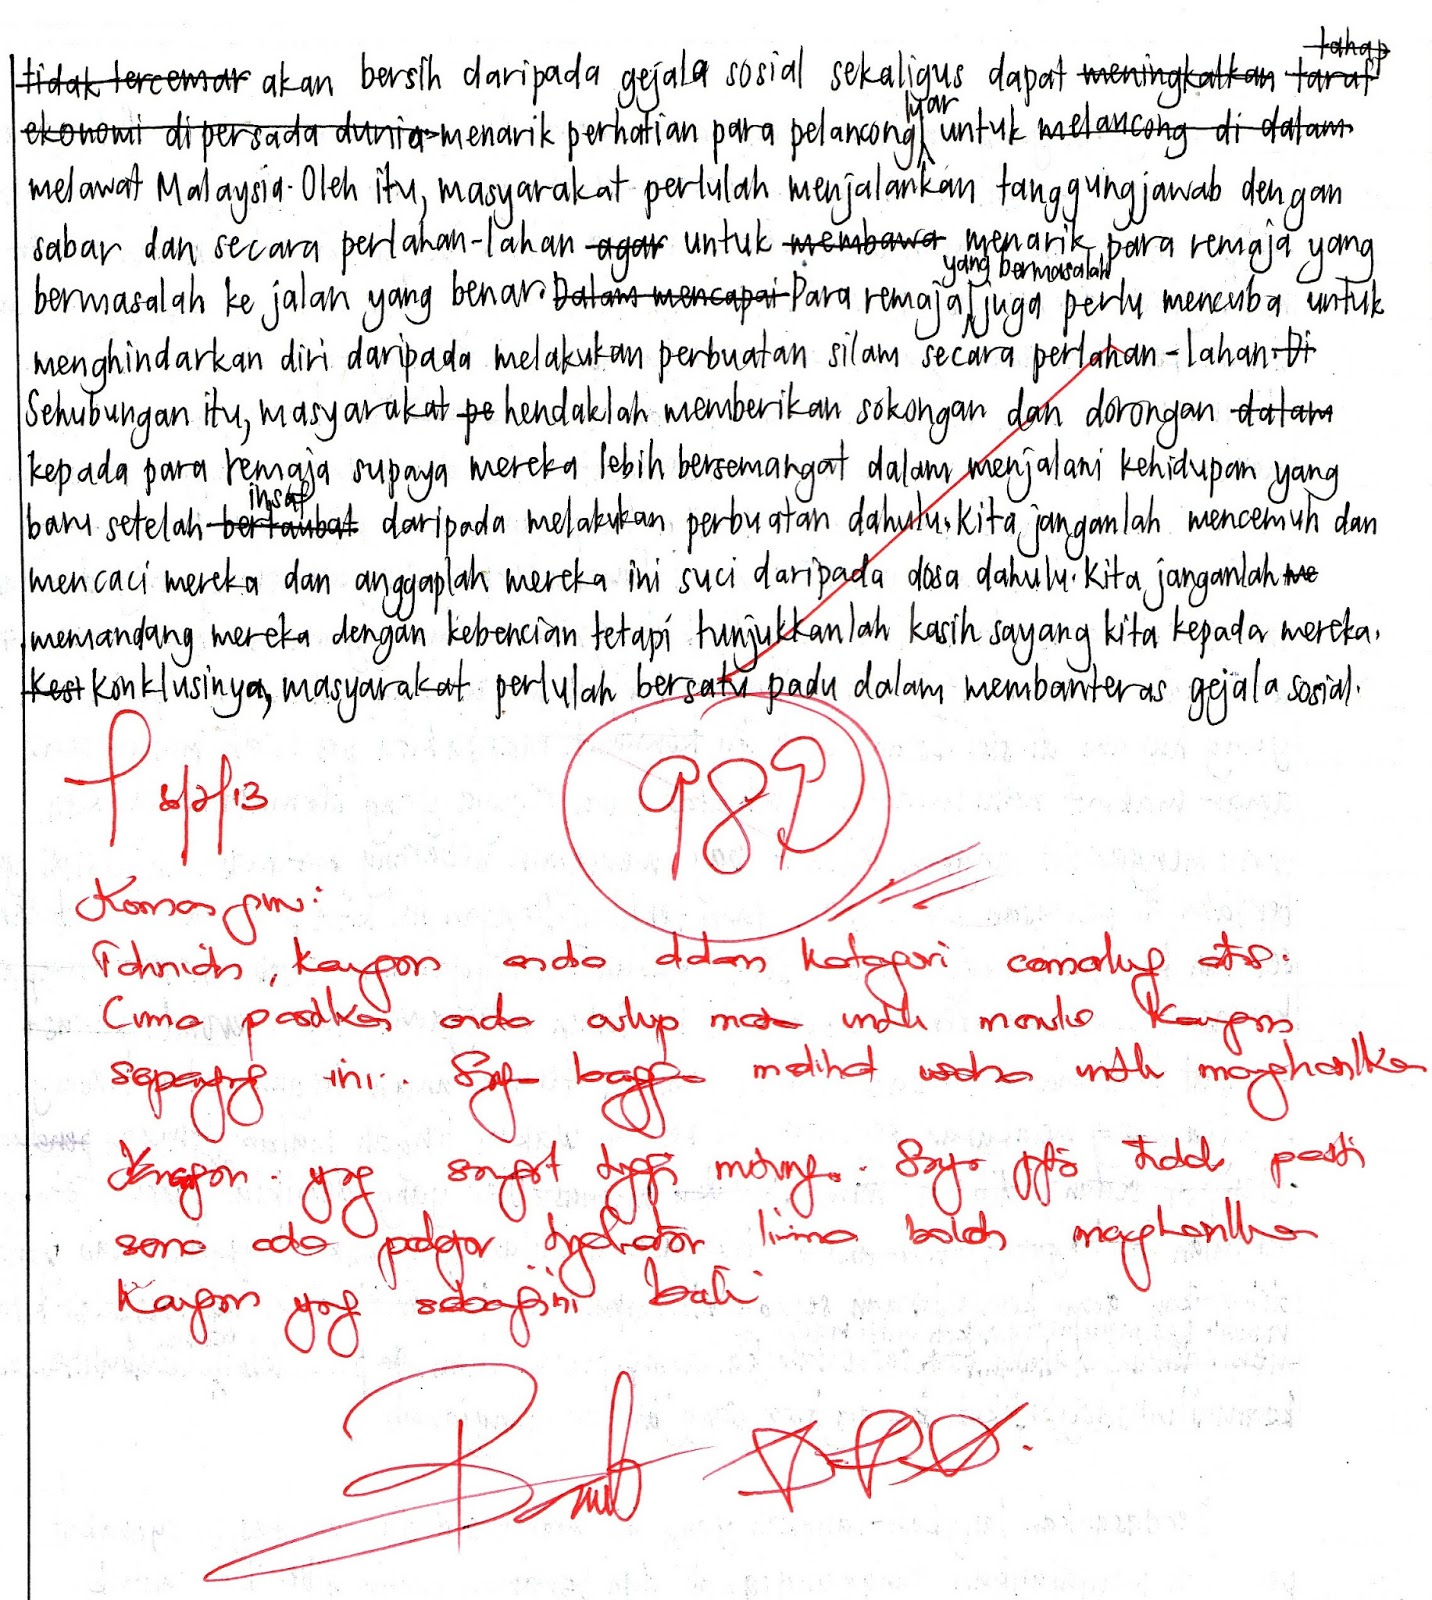 tahap
tidak tercemar akan bersih daripada gejala sosial sekaligus dapat meningkatkan taraf
luar
ekonomi dipersada dunia menarik perhatian para pelancong untuk melancong di dalam
melawat Malaysia. Oleh itu, masyarakat perlulah menjalankan tanggungjawab dengan
sabar dan secara perlahan-lahan agar untuk membawa menarik para remaja yang
yang bermasalah
bermasalah ke jalan yang benar. Dalam mencapai Para remaja juga perlu mencuba untuk
menghindarkan diri daripada melakukan perbuatan silam secara perlahan-lahan. Di
Sehubungan itu, masyarakat pe hendaklah memberikan sokongan dan dorongan dalam
kepada para remaja supaya mereka lebih bersemangat dalam menjalani kehidupan yang
insaf
baru setelah bertaubat daripada melakukan perbuatan dahulu. Kita janganlah mencemuh dan
mencaci mereka dan anggaplah mereka ini suci daripada dosa dahulu. Kita janganlah me
memandang mereka dengan kebencian tetapi tunjukkanlah kasih sayang kita kepada mereka.
Kest Konklusinya, masyarakat perlulah bersatu padu dalam membanteras gejala sosial.
8/2/13
98
Tahniah, karangan anda dalam kategori cemerlang
Cuma pastikan anda cukup masa untuk menulis karangan
sepanjang ini. Saya bangga melihat usaha untuk menghasilkan
karangan yang sangat tinggi Saya tidak pasti
sama ada pelajar tingkatan lima boleh menghasilkan
karangan yang sebegini baik